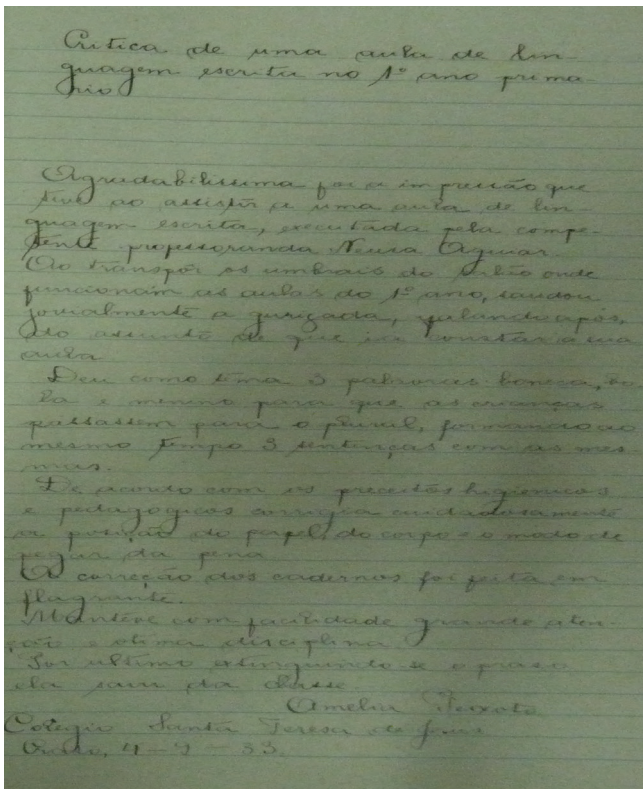 Critica de uma aula de lin-
guagem escrita no 1º ano prima-
rio
Agradabilissima foi a impressão que
tive ao assistir a uma aula de lin-
guagem escrita, executada pela compe-
tente professoranda Neusa Aguiar.
Ao transpôr os umbrais do salão onde
funcionam as aulas do 1º ano, saudou
jovialmente a gurizada, falando após,
do assunto de que ia constar a sua
aula.
Deu como tema 3 palavras boneca, bo-
la e menino para que as crianças
passassem para o plural, formando ao
mesmo tempo 3 sentenças com as mes-
mas.
De acordo com os preceitos higienicos
e pedagogicos corrigia cuidadosamente
a posição do papel, do corpo e o modo de
pegar da pena
A correção dos cadernos foi feita em
flagrante.
Manteve com facilidade grande aten-
ção e otima disciplina.
Por ultimo extinguindo se o praso
ela saiu da classe
Amelia Peixoto
Colegio Santa Teresa de Jesus
33.